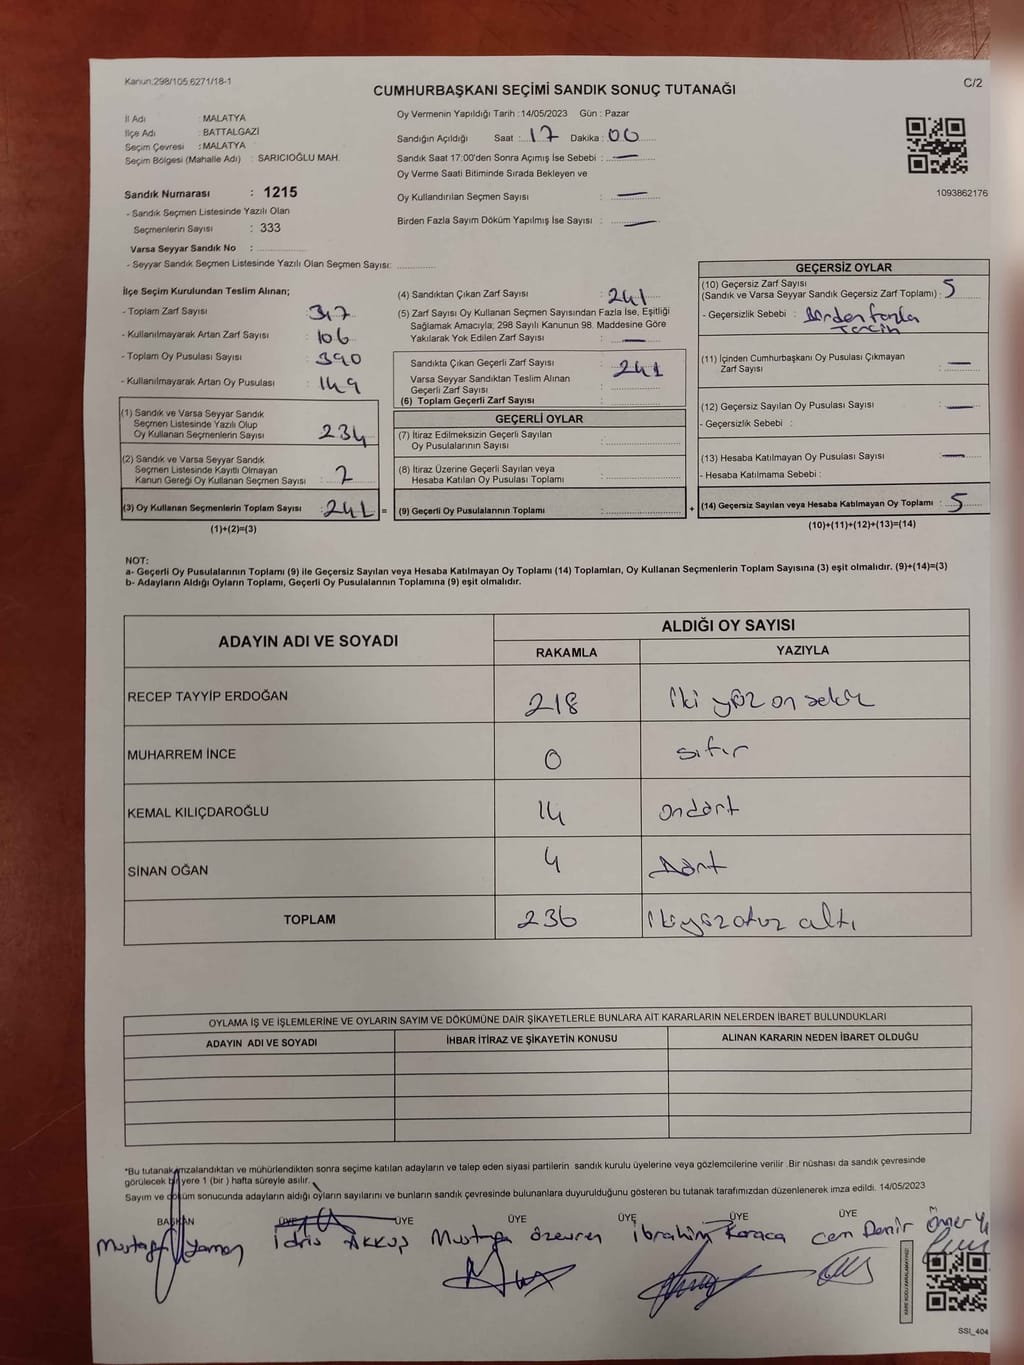 Kanun:298/105,6271/18-1
C/2
CUMHURBAŞKANI SEÇİMİ SANDIK SONUÇ TUTANAĞI
İl Adı : MALATYA
İlçe Adı : BATTALGAZİ
Seçim Çevresi : MALATYA
Seçim Bölgesi (Mahalle Adı) : SARICIOĞLU MAH.
Sandık Numarası : 1215
- Sandık Seçmen Listesinde Yazılı Olan
Seçmenlerin Sayısı : 333
Varsa Seyyar Sandık No :
- Seyyar Sandık Seçmen Listesinde Yazılı Olan Seçmen Sayısı:
Oy Vermenin Yapıldığı Tarih : 14/05/2023 Gün : Pazar
Sandığın Açıldığı Saat : 17 Dakika : 00
Sandık Saat 17:00'den Sonra Açımış İse Sebebi : —
Oy Verme Saati Bitiminde Sırada Bekleyen ve
Oy Kullandırılan Seçmen Sayısı : —
Birden Fazla Sayım Döküm Yapılmış İse Sayısı : —
1093862176
İlçe Seçim Kurulundan Teslim Alınan;
- Toplam Zarf Sayısı : 347
- Kullanılmayarak Artan Zarf Sayısı : 106
- Toplam Oy Pusulası Sayısı : 390
- Kullanılmayarak Artan Oy Pusulası : 149
(1) Sandık ve Varsa Seyyar Sandık
Seçmen Listesinde Yazılı Olup
Oy Kullanan Seçmenlerin Sayısı : 234
(2) Sandık ve Varsa Seyyar Sandık
Seçmen Listesinde Kayıtlı Olmayan
Kanun Gereği Oy Kullanan Seçmen Sayısı : 7
(3) Oy Kullanan Seçmenlerin Toplam Sayısı : 241 =
(1)+(2)=(3)
(4) Sandıktan Çıkan Zarf Sayısı : 241
(5) Zarf Sayısı Oy Kullanan Seçmen Sayısından Fazla İse, Eşitliği
Sağlamak Amacıyla; 298 Sayılı Kanunun 98. Maddesine Göre
Yakılarak Yok Edilen Zarf Sayısı : —
Sandıkta Çıkan Geçerli Zarf Sayısı : 241
Varsa Seyyar Sandıktan Teslim Alınan
Geçerli Zarf Sayısı :
(6) Toplam Geçerli Zarf Sayısı :
GEÇERLİ OYLAR
(7) İtiraz Edilmeksizin Geçerli Sayılan
Oy Pusulalarının Sayısı :
(8) İtiraz Üzerine Geçerli Sayılan veya
Hesaba Katılan Oy Pusulası Toplamı :
(9) Geçerli Oy Pusulalarının Toplamı : +
GEÇERSİZ OYLAR
(10) Geçersiz Zarf Sayısı
(Sandık ve Varsa Seyyar Sandık Geçersiz Zarf Toplamı) : 5
- Geçersizlik Sebebi : Birden fazla
Tercih
(11) İçinden Cumhurbaşkanı Oy Pusulası Çıkmayan
Zarf Sayısı : —
(12) Geçersiz Sayılan Oy Pusulası Sayısı : —
- Geçersizlik Sebebi :
(13) Hesaba Katılmayan Oy Pusulası Sayısı : —
- Hesaba Katılmama Sebebi :
(14) Geçersiz Sayılan veya Hesaba Katılmayan Oy Toplamı : 5
(10)+(11)+(12)+(13)=(14)
NOT:
a- Geçerli Oy Pusulalarının Toplamı (9) ile Geçersiz Sayılan veya Hesaba Katılmayan Oy Toplamı (14) Toplamları, Oy Kullanan Seçmenlerin Toplam Sayısına (3) eşit olmalıdır. (9)+(14)=(3)
b- Adayların Aldığı Oyların Toplamı, Geçerli Oy Pusulalarının Toplamına (9) eşit olmalıdır.
ADAYIN ADI VE SOYADI
ALDIĞI OY SAYISI
RAKAMLA YAZIYLA
RECEP TAYYİP ERDOĞAN 218 İki yüz on sekiz
MUHARREM İNCE 0 sıfır
KEMAL KILIÇDAROĞLU 14 ondört
SİNAN OĞAN 4 Dört
TOPLAM 236 İkiyüzotuz altı
OYLAMA İŞ VE İŞLEMLERİNE VE OYLARIN SAYIM VE DÖKÜMÜNE DAİR ŞİKAYETLERLE BUNLARA AİT KARARLARIN NELERDEN İBARET BULUNDUKLARI
ADAYIN ADI VE SOYADI İHBAR İTİRAZ VE ŞİKAYETİN KONUSU ALINAN KARARIN NEDEN İBARET OLDUĞU
*Bu tutanak imzalandıktan ve mühürlendikten sonra seçime katılan adayların ve talep eden siyasi partilerin sandık kurulu üyelerine veya gözlemcilerine verilir .Bir nüshası da sandık çevresinde
görülecek bir yere 1 (bir ) hafta süreyle asılır.
Sayım ve döküm sonucunda adayların aldığı oyların sayılarını ve bunların sandık çevresinde bulunanlara duyurulduğunu gösteren bu tutanak tarafımızdan düzenlenerek imza edildi. 14/05/2023
BAŞKAN ÜYE ÜYE ÜYE ÜYE ÜYE ÜYE
Mustafa Yaman İdris AKKUŞ Mustafa Özevren İbrahim Karaca Cem Demir Ömer
SSİ_404